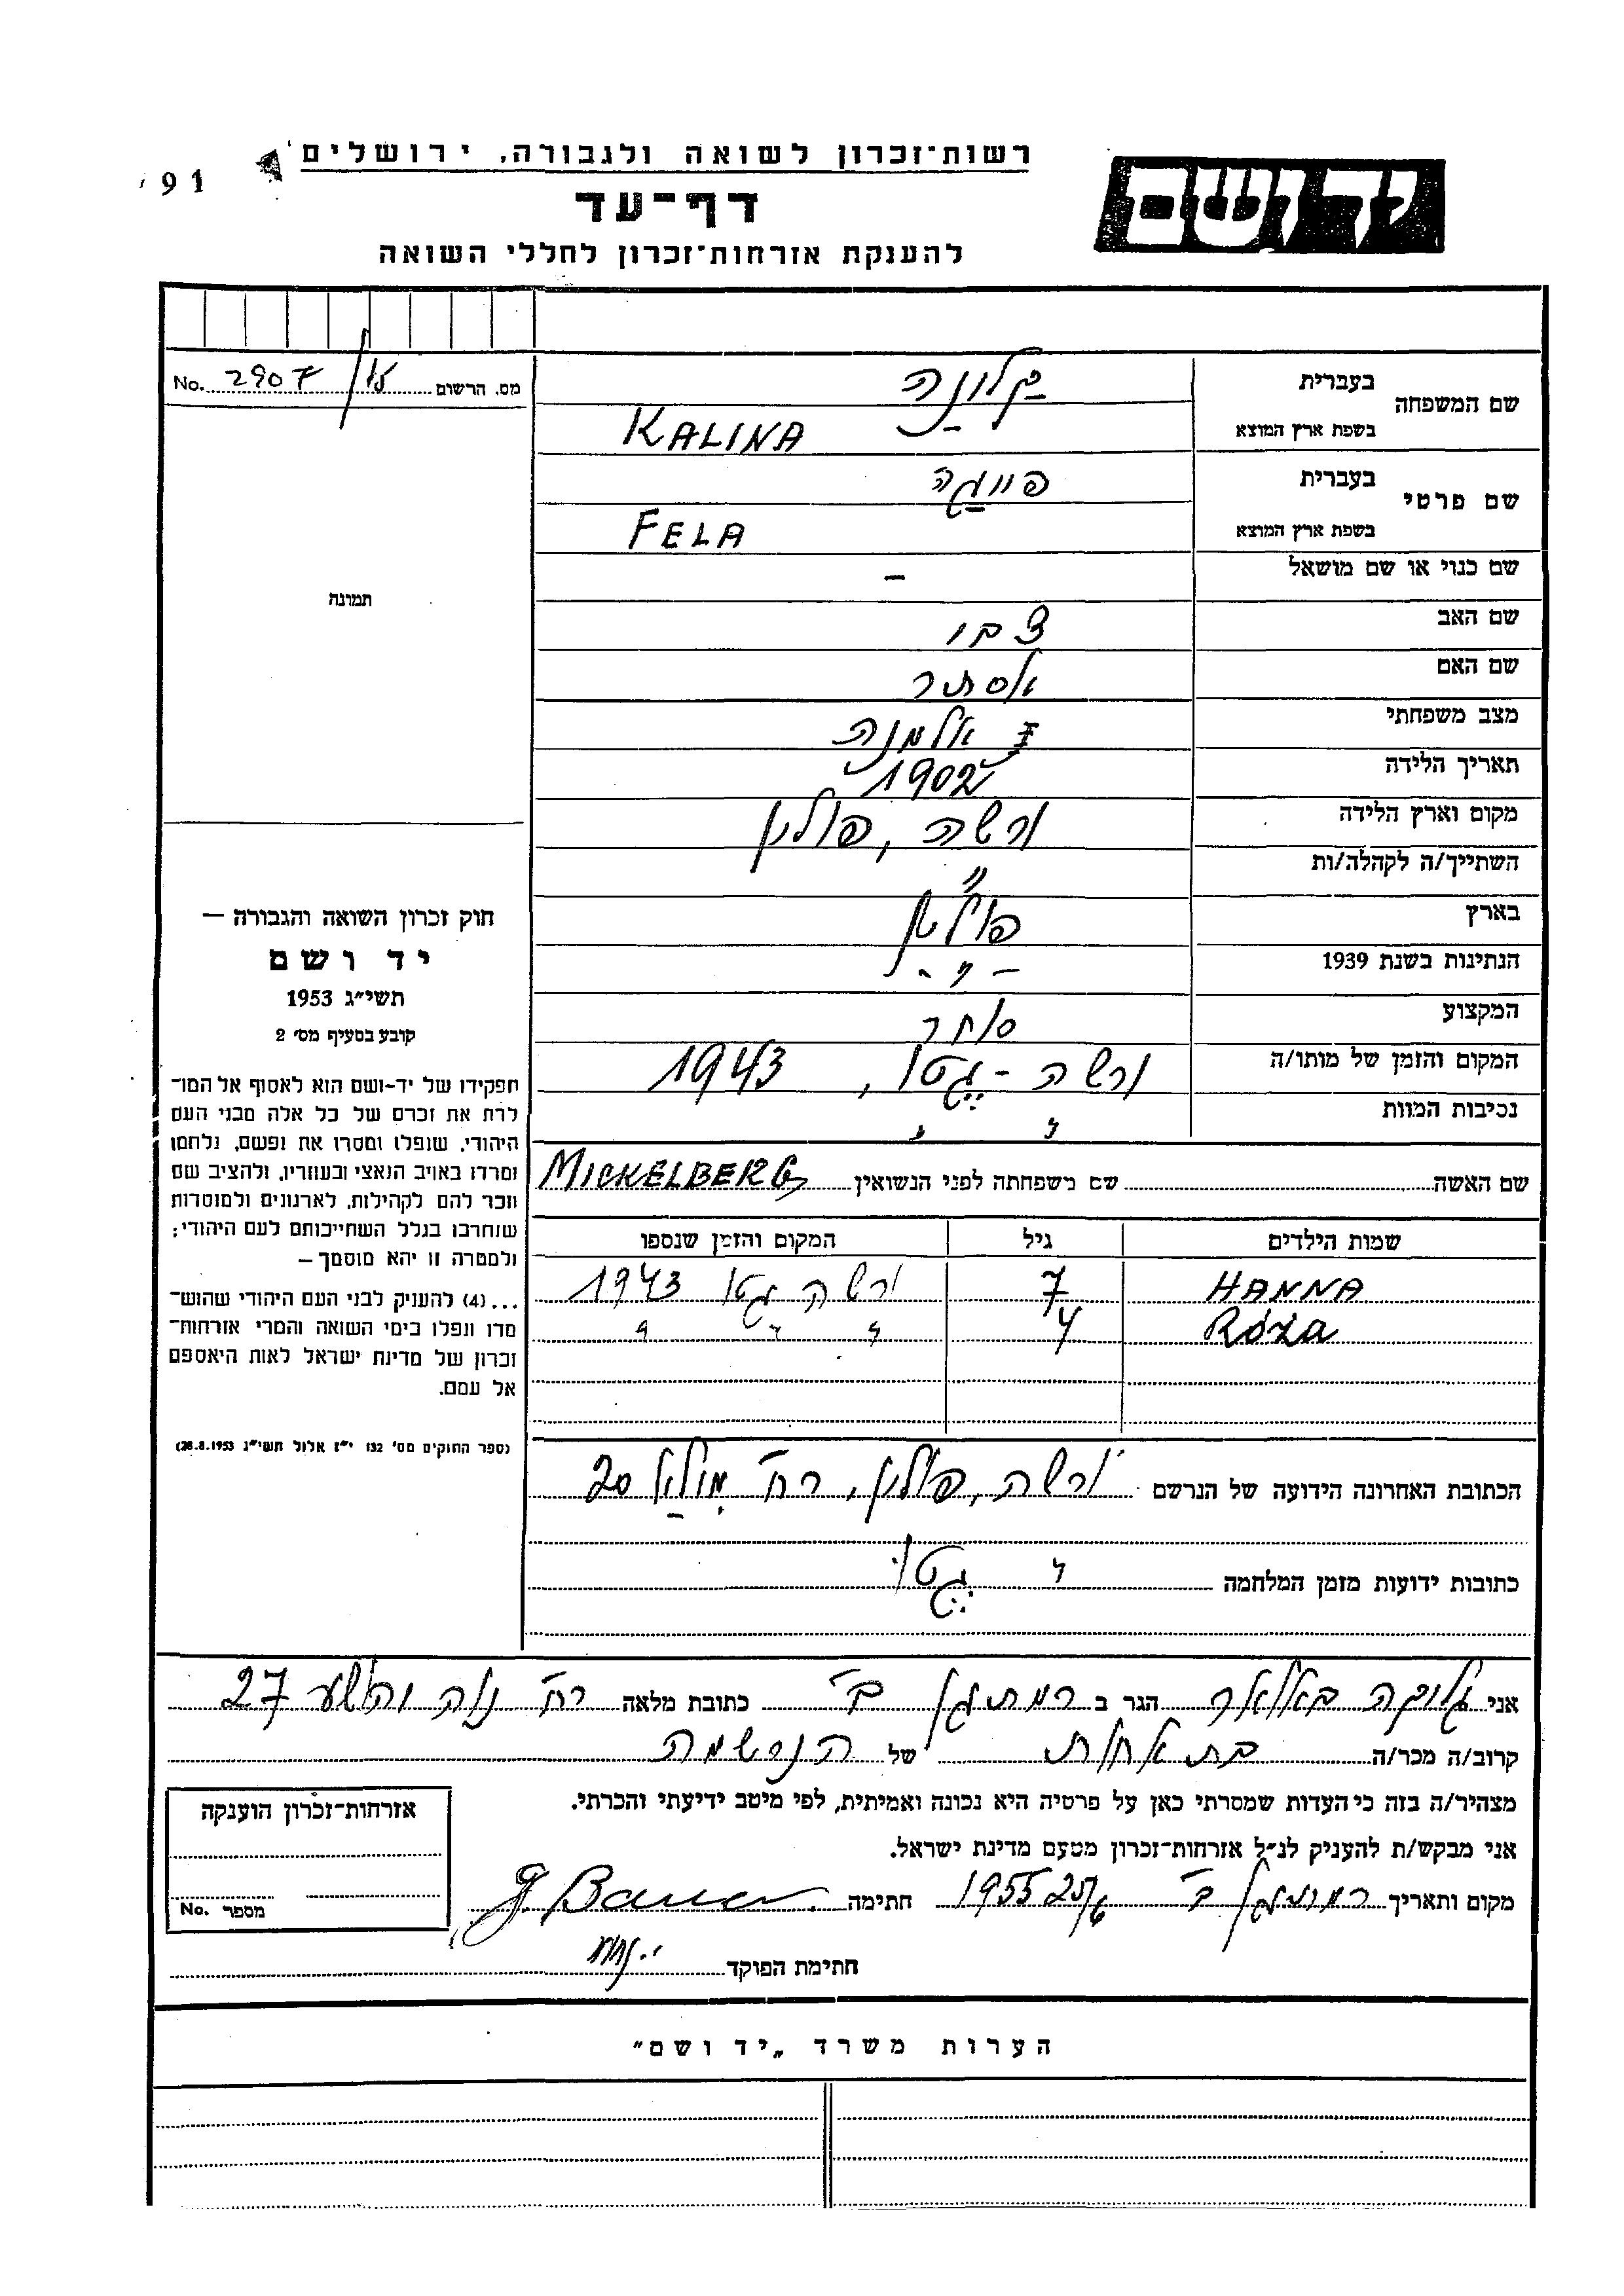 רשות־זכרון לשואה ולגבורה, ירושלים
91
יד ושם
דף־עד
להענקת אזרחות־זכרון לחללי השואה
מס. הרשום 2907 No.
שם המשפחה בעברית
בשפת ארץ המוצא KALINA
שם פרטי בעברית פייגה
בשפת ארץ המוצא FELA
תמונה
שם כנוי או שם מושאל –
שם האב
שם האם אסתר
מצב משפחתי אלמנה
תאריך הלידה 1902
מקום וארץ הלידה ורשה, פולין
השתייך/ה לקהלה/ות "
בארץ פולין
הנתינות בשנת 1939 – " -
המקצוע סוחר
המקום והזמן של מותו/ה ורשה - געטו, 1943
נכיבות המוות
שם האשה שם משפחתה לפני הנשואין MICKELBERG
שמות הילדים גיל המקום והזמן שנספו
HANNA 7 ורשה געטו 1943
RÓŻA 4 " " "
הכתובת האחרונה הידועה של הנרשם ורשה, פולין, רח' מילא 20
כתובות ידועות מזמן המלחמה געטו
חוק זכרון השואה והגבורה –
יד ושם
תשי"ג 1953
קובע בסעיף מס' 2
תפקידו של יד־ושם הוא לאסוף אל המו־
לדת את זכרם של כל אלה מבני העם
היהודי, שנפלו ומסרו את נפשם, נלחמו
ומרדו באויב הנאצי ובעוזריו, ולהציב שם
וזכר להם לקהילות, לארגונים ולמוסדות
שנחרבו בגלל השתייכותם לעם היהודי;
ולמטרה זו יהא מוסמך –
...(4) להעניק לבני העם היהודי שהוש־
מדו ונפלו בימי השואה והמרי אזרחות־
זכרון של מדינת ישראל לאות היאספם
אל עמם.
(ספר החוקים מס' 132 י"ז אלול תשי"ג 28.8.1953)
אני הגר ב רמת גן ב' כתובת מלאה רח' נוה יהושע 27
קרוב/ה מכר/ה בת אחות של הנרשמה
מצהיר/ה בזה כי העדות שמסרתי כאן על פרטיה היא נכונה ואמיתית, לפי מיטב ידיעתי והכרתי.
אני מבקש/ת להעניק לנ"ל אזרחות־זכרון מטעם מדינת ישראל.
מקום ותאריך רמת גן ב' 1955 חתימה G. Bauer
חתימת הפוקד
אזרחות־זכרון הוענקה
מספר No.
הערות משרד „יד ושם"